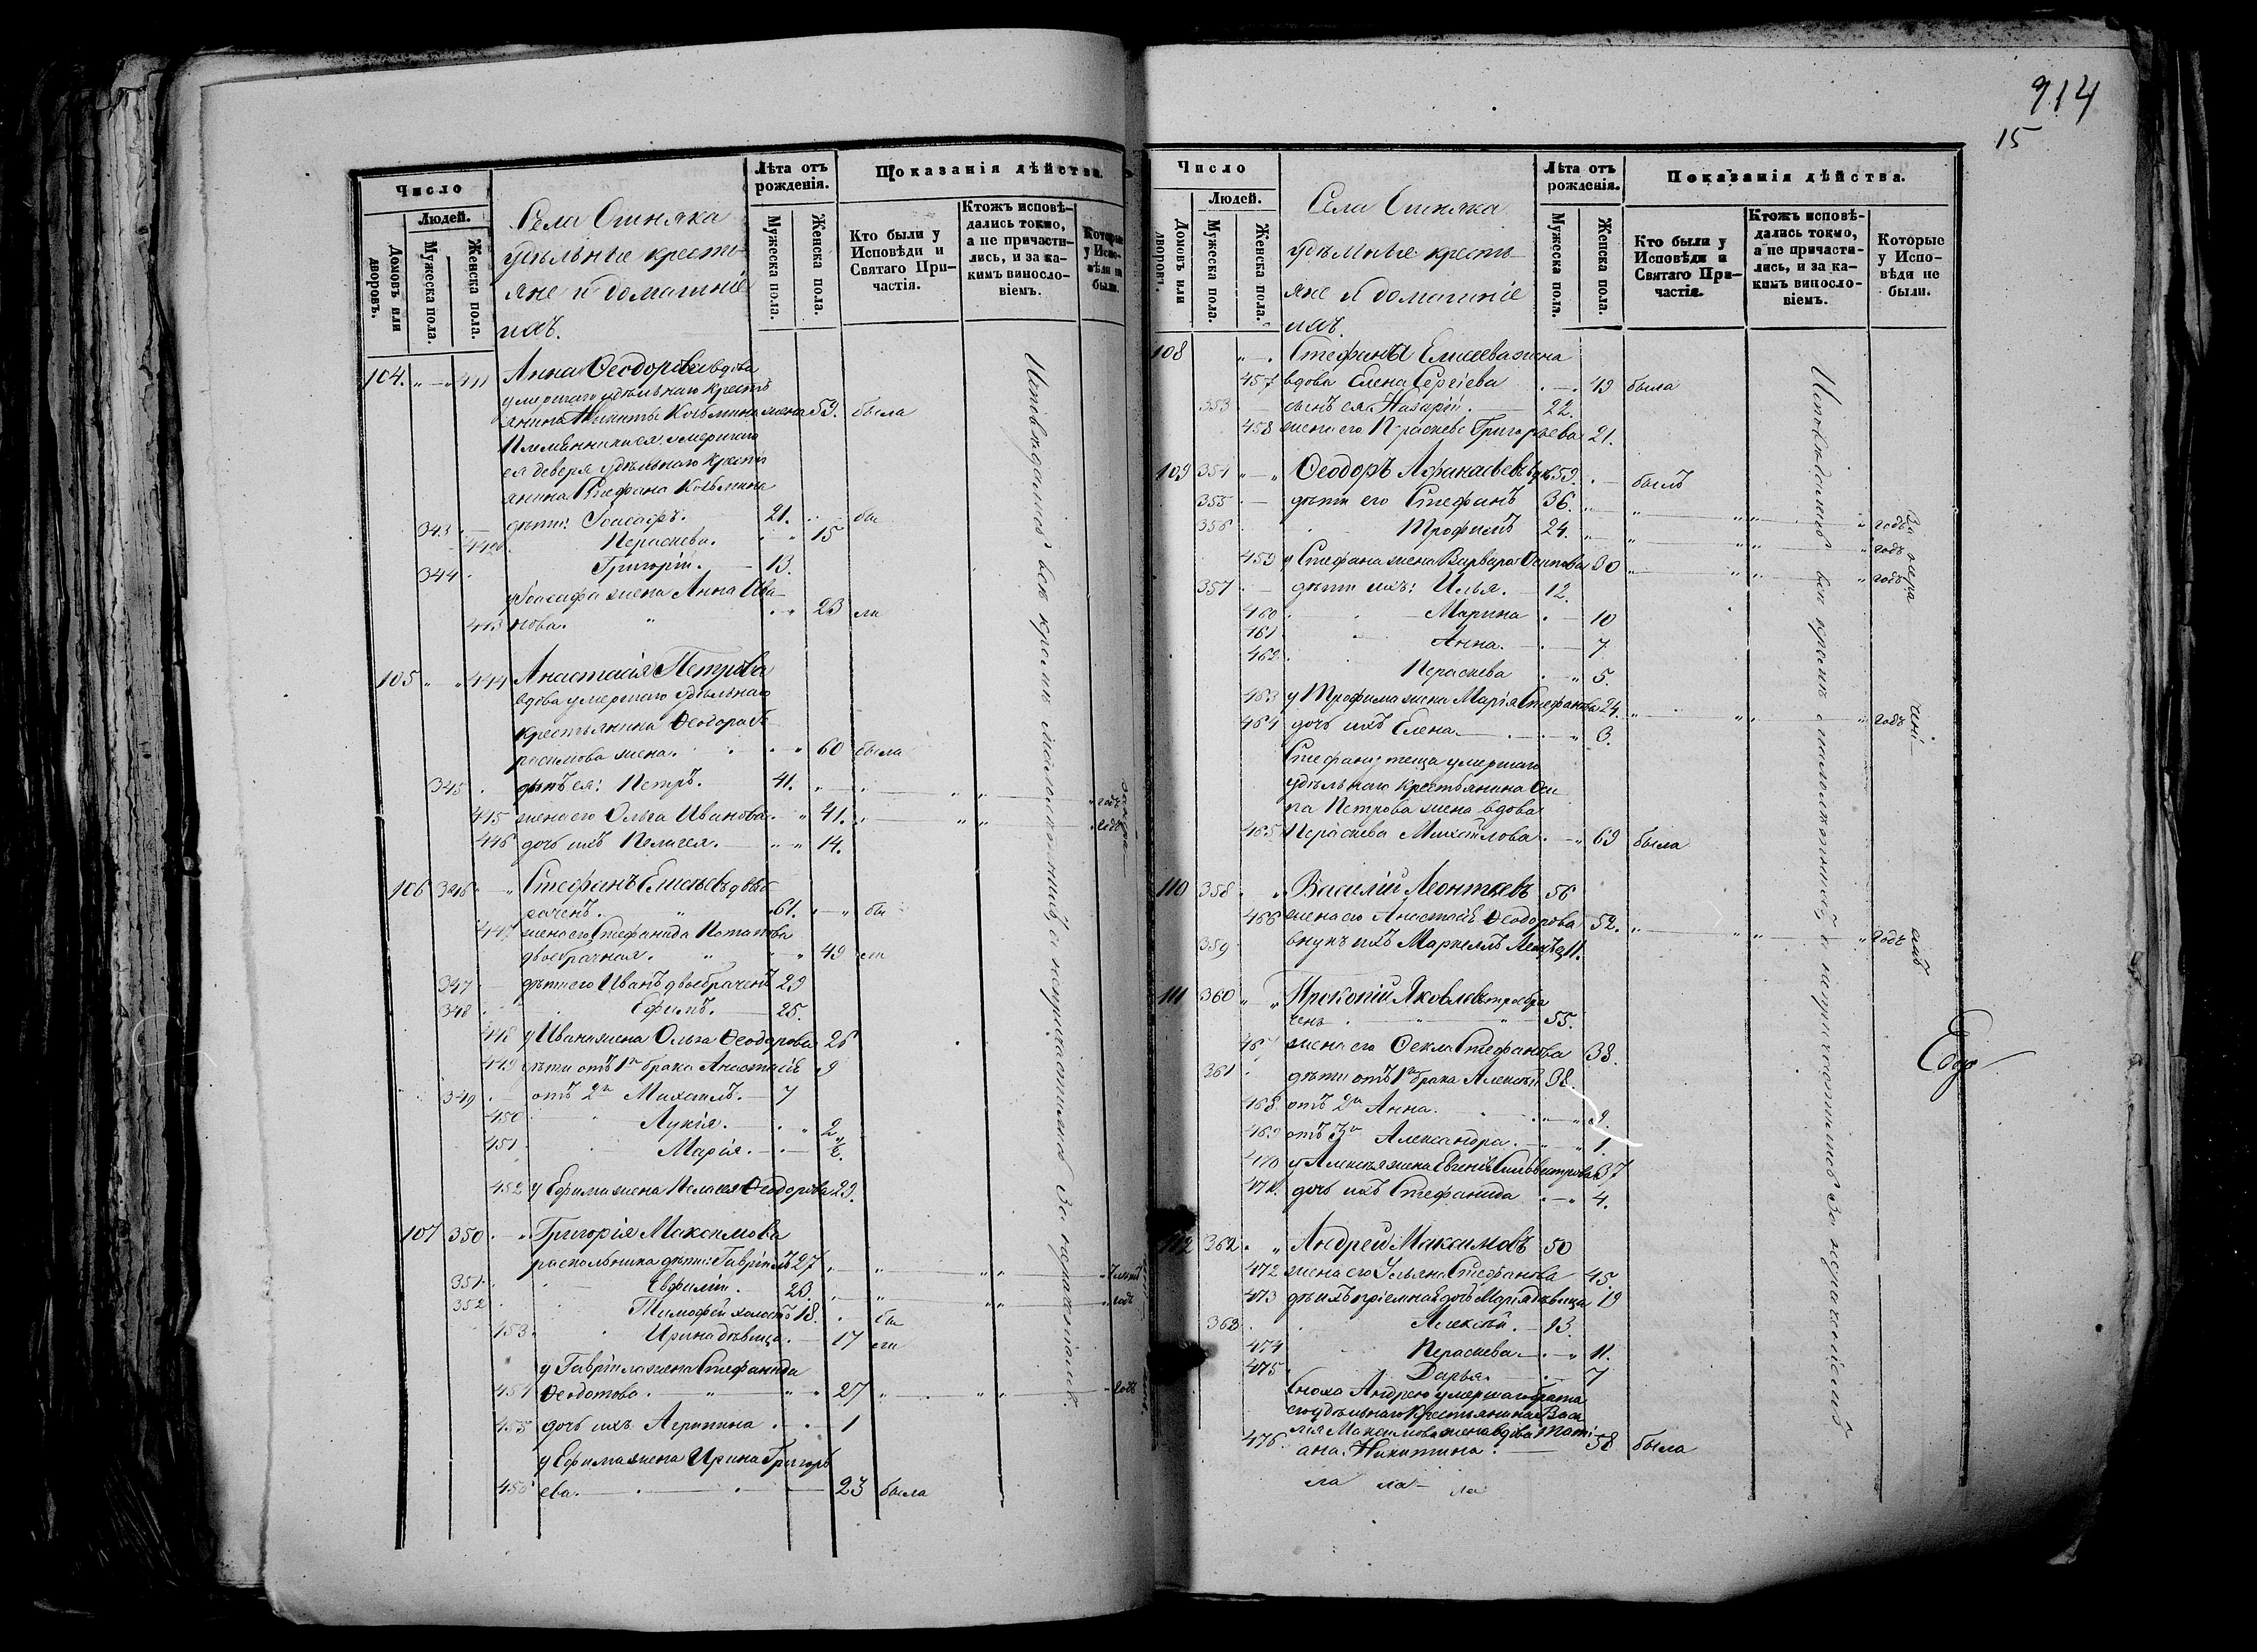 914
15
Число
Людей.
Домовъ или дворовъ.
Мужеска пола.
Женска пола.
Села
удѣльные кресть-
яне и домашніе
ихъ.
Лѣта отъ рожденія.
Мужеска пола.
Женска пола.
Показанія дѣйства.
Кто были у Исповѣди и Святаго При-частія.
Ктожъ исповѣ-дались токмо, а не причасти-лись, и за ка-кимъ винослο-віемъ.
Которые у Испо-вѣди не были.
104. 441 Анна Ѳеодорова вдова
умершаго удѣльнаго кресть
янина Никиты Козьмина жена 59. была
Племянники ея умершаго
ея деверя удѣльнаго кресть
янина Стефана Козьмина
343 дѣти: Іоасафъ. 21. бы
442 Параскева. 15
344 Григорій. 13.
у Іоасафа жена Анна Ива-
443 нова. 23 ли
105 444 Анастасія Петрова
вдова умершаго удѣльнаго
крестьянина Ѳеодора
жена. 60 была
345 сынъ ея: Петръ. 41. годъ
445 жена его Ольга Иванова 41. годъ
446 дочь ихъ Пелагея. 14.
106 346 Стефанъ Елисѣевъ двоб
раченъ. 61. бы
447 жена его Стефанида Потапова
двоебрачная. 49 ли
347 дѣти его Иванъ двоебраченъ 29
348 Ефимъ. 25.
448 у Ивана жена Ольга Ѳеодорова 26
449 дѣти отъ 1го брака Анастасія 9
349 отъ 2го Михаилъ. 7
450 Лукія. 2
451 Марія.
452 у Ефима жена Пелагея Ѳеодорова 29.
107 350 Григорія Максимова
раскольника дѣти: Гавріилъ 27
351 Евфимій. 23.
352 Тимофей холостъ 18. бы
453 Ирина дѣвица. 17 ли
у Гавріила жена Стефанида
454 Ѳеодотова. 27 годъ
455 дочь ихъ Агрипина 1
у Ефима жена Ирина Григорь
456 ева. 23 была
Исповѣдались всѣ кромѣ малолѣтнихъ, а непричастились за
Число
Людей.
Домовъ или дворовъ.
Мужеска пола.
Женска пола.
Села
удѣльные кресть-
яне и домашніе
ихъ.
Лѣта отъ рожденія.
Мужеска пола.
Женска пола.
Показанія дѣйства.
Кто были у Исповѣди и Святаго При-частія.
Ктожъ исповѣ-дались токмо, а не причасти-лись, и за ка-кимъ винослο-віемъ.
Которые у Испо-вѣди не были.
108 Стефана Елисѣева жена
457 вдова Елена Сергіева 49 была
353 сынъ ея Назарій. 22.
458 жена его Параскева Григорьева 21.
109 354 Ѳеодоръ Афанасьевъ вд. 59. былъ
355 дѣти его Стефанъ 36. годъ
356 Трофимъ 24. годъ
459 у Стефана жена Варвара Осипова 30 годъ
357 дѣти ихъ: Илья. 12.
460 Марина 10
461 Анна. 7
462 Параскева 5.
463 у Трофима жена Марія Стефанова 24. годъ
464 дочь ихъ Елена. 3.
Стефану теща умершаго
удѣльнаго крестьянина Оси
па Петрова жена вдова
465 Параскева Михайлова 69 была
110 358 Василій Леонтьевъ 56
466 жена его Анастасія Ѳеодорова 52. годъ
359 внукъ ихъ Маркеллъ 11.
111 360 Прокопій Яковлевъ троебра
ченъ 55.
467 жена его Ѳекла Стефанова 38.
361 дѣти отъ 1го брака Алексѣй 38.
468 отъ 2го Анна. 9.
469 отъ 3го Александра. 1.
470 у Алексѣя жена Евгенія Сильвестрова 37
471 дочь ихъ Стефанида 4.
112 362 Андрей Максимовъ 50
472 жена его Ульяна Стефанова 45
473 пріемная дочь Марія дѣвица 19
363 Алексѣй. 13.
474 Параскева. 11.
475 Дарья. 7
Сноха Андрею умершаго брата
его удѣльнаго крестьянина Васи
лія Максимова жена вдова Тати
476 ана Никитина. 58 была
ла ла ла
Исповѣдались всѣ кромѣ малолѣтнихъ, а непричастились за